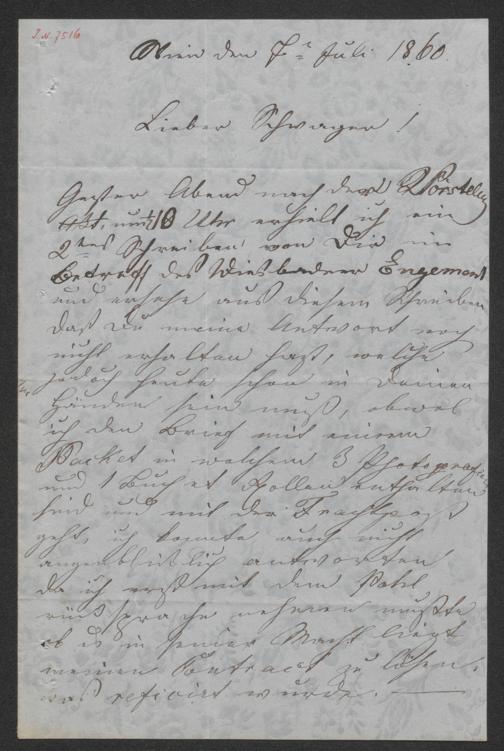 I.N. 7516
Wien den 7t Juli 1860.
Lieber Schwager!
Gester Abend nach der Vorstellg
um 1/2 10 Uhr erhielt ich ein
2tes Schreiben von Dir im
Betreff des Wiesbadner Engement
und ersehe aus diesem Schreiben
daß Du meine Antwort noch
nicht erhalten hast, welche
jedoch heute schon in Deinen
Händen sein muß, obwol
ich den Brief mit einem
Packet in welchem 3 Photografien
und 1 Buch et Rollen enthalten
sind und mit der Frachtpost
geht, ich konnte auch nicht
augenbliklich antworten
da ich erst mit dem
rücksprache nehmen mußte
ob es in seiner Macht liegt
meinen Contract zu lösen,
was refisirt wurde. —